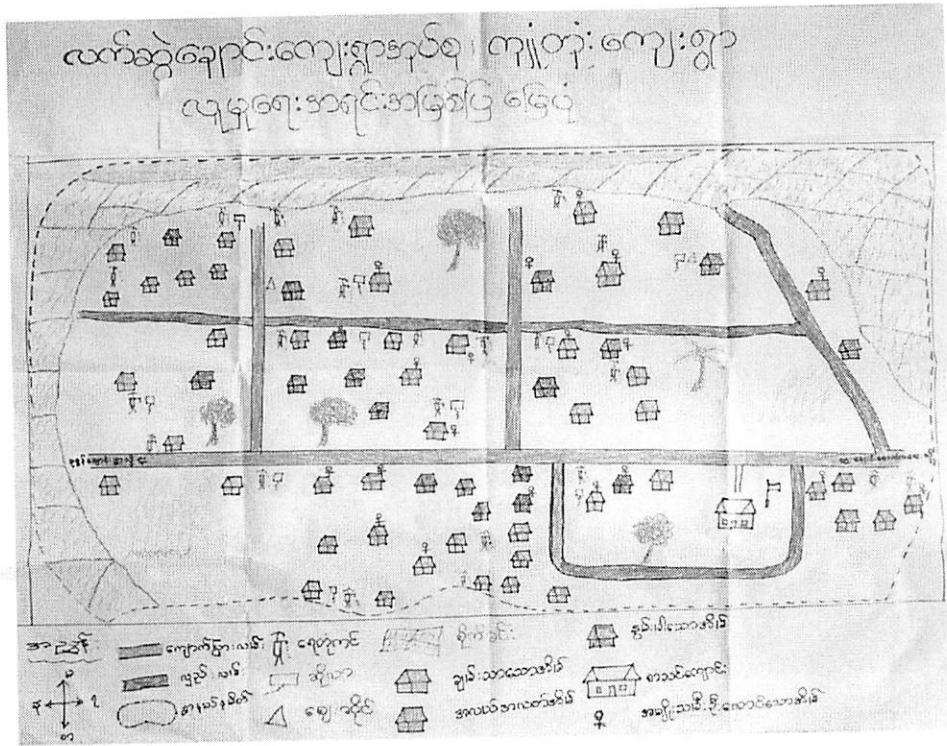 လက်ဆွဲချောင်းကျေးရွာအုပ်စု၊ ကျုံတုံးကျေးရွာ
လူမှုရေးအရင်းအမြစ်ပြ မြေပုံ
အညွှန်း
ကျောက်ခြားလမ်း
လှည်းလမ်း
ရွာနယ်နမိတ်
ရေတုံကင်
အိုသာ
ဈေးဆိုင်
စိုက်ခင်း
ချမ်းသာသောအိမ်
အလယ်အလတ်အိမ်
နွမ်းပါးသောအိမ်
စာသင်ကျောင်း
အမျိုးသမီးဦးဆောင်သောအိမ်